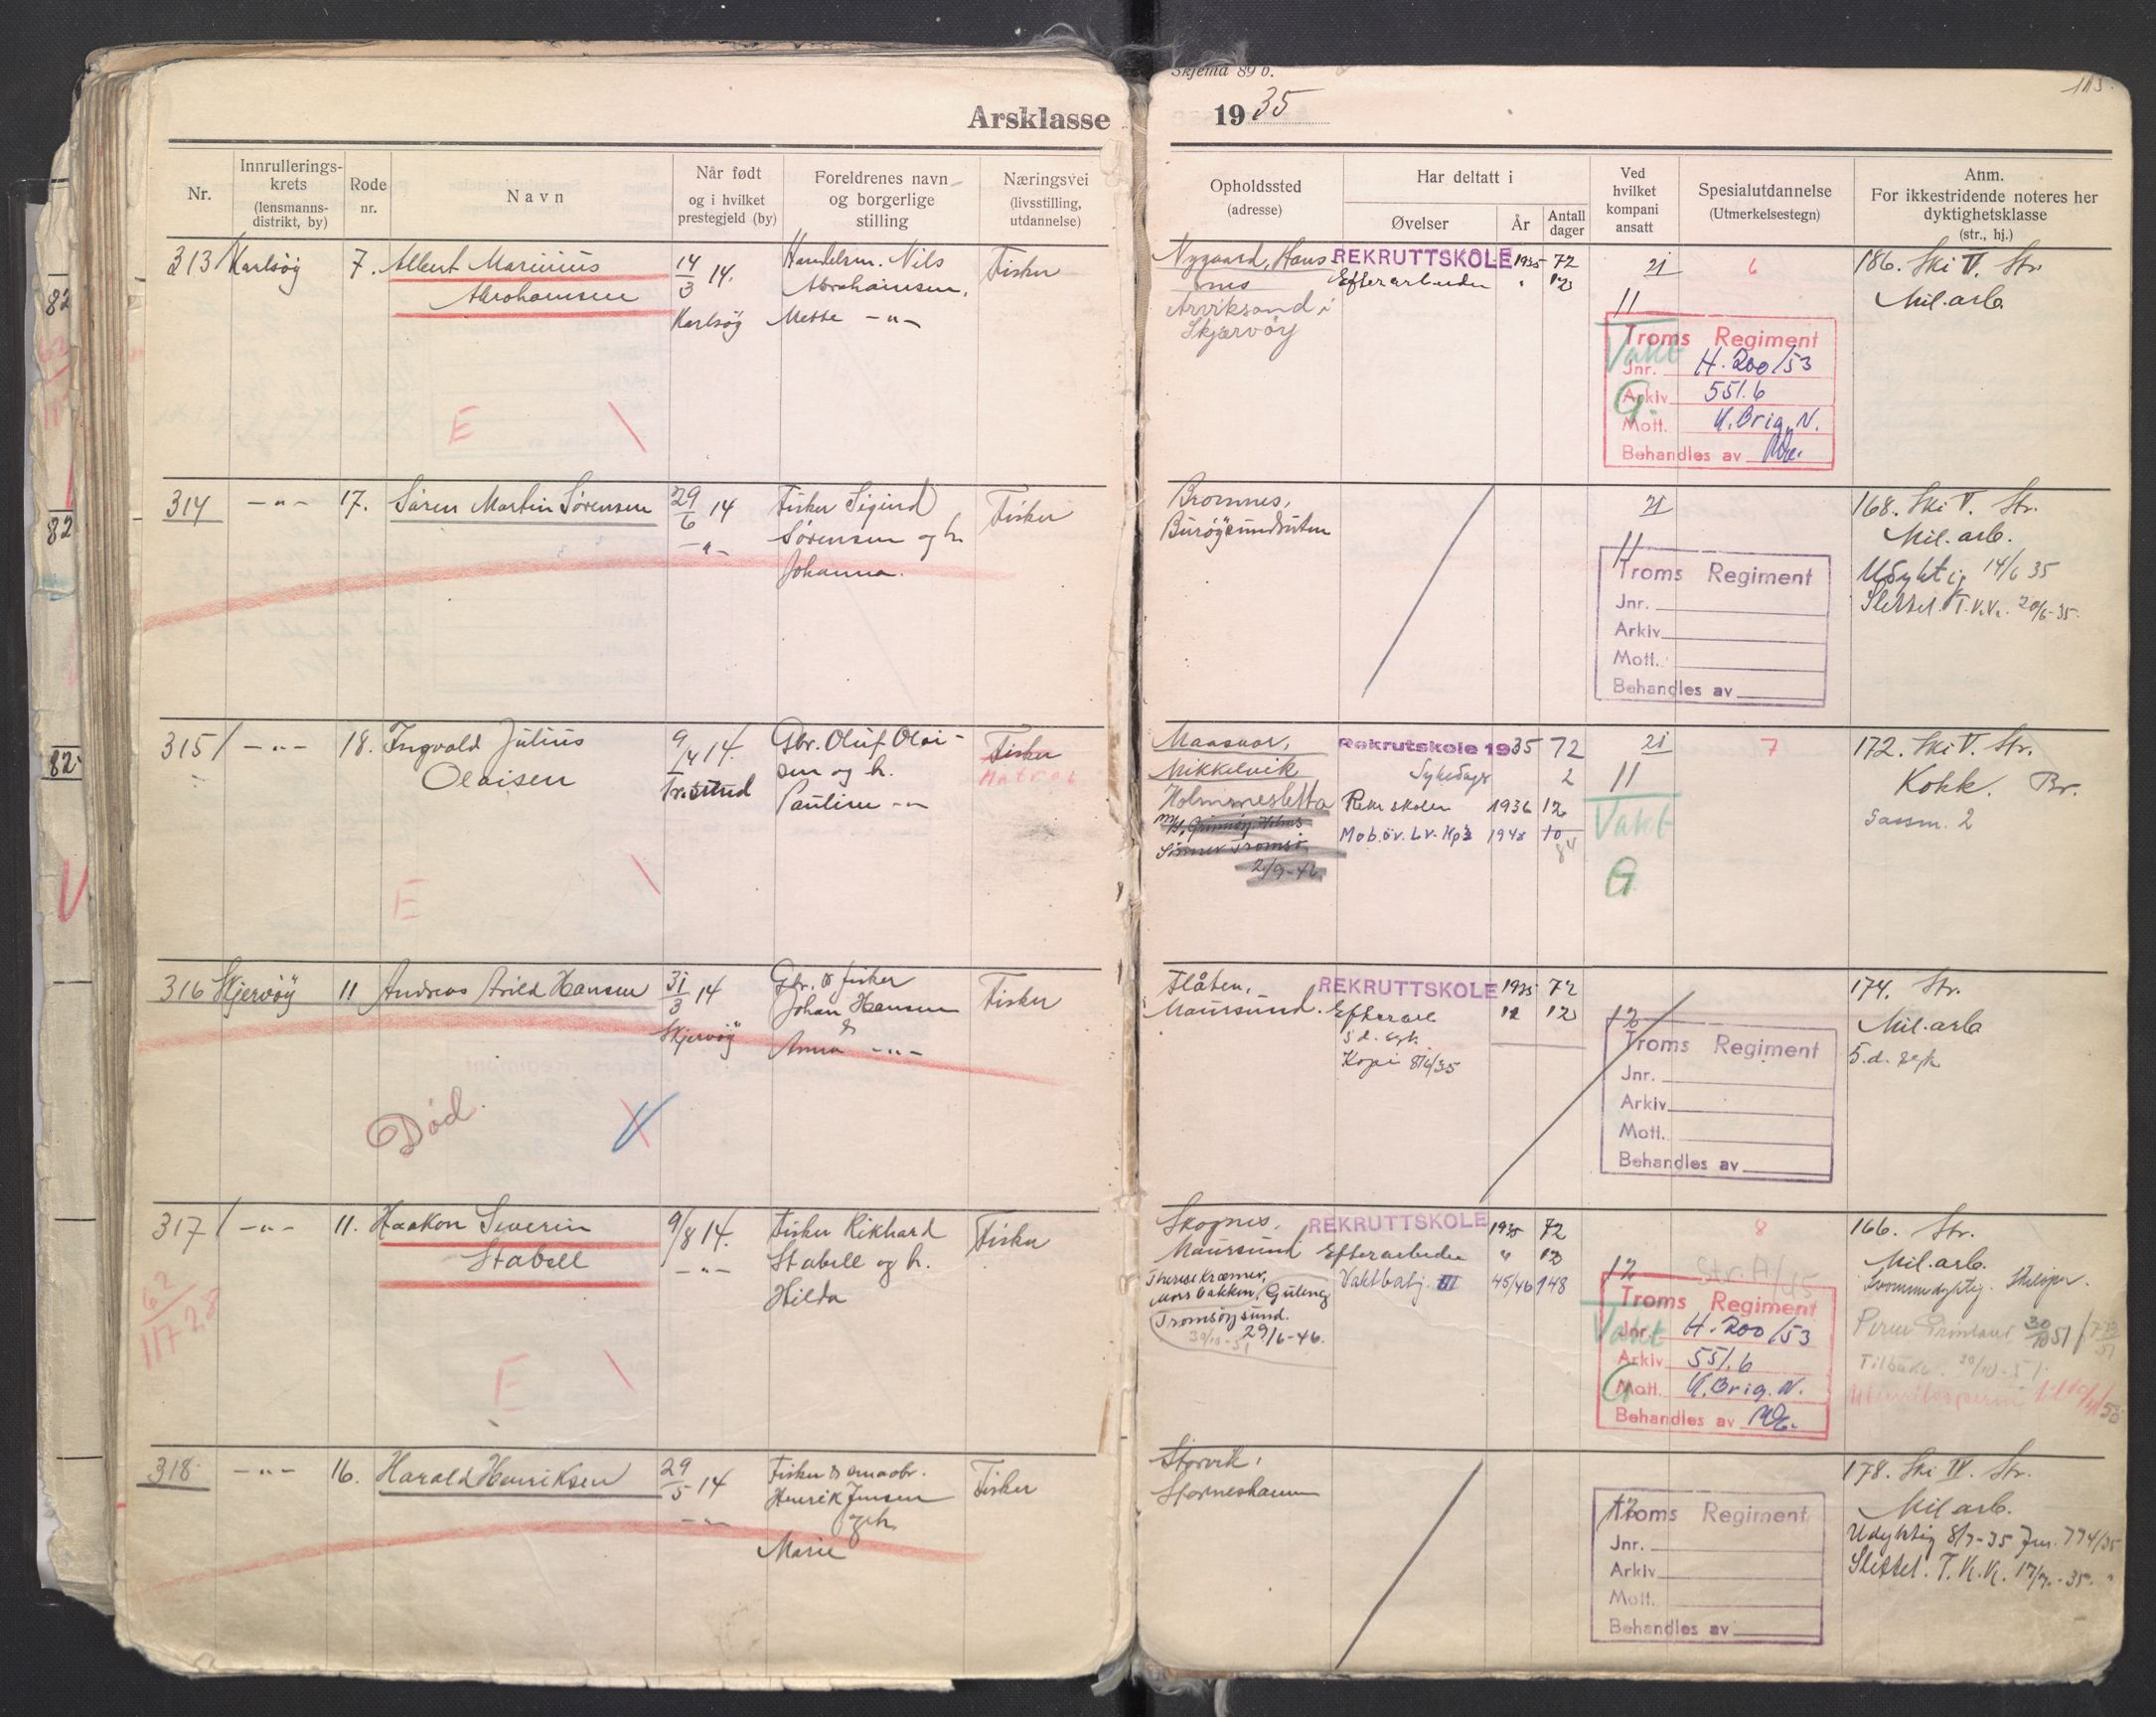 Skjema 89 b.
113
Årsklasse 1935
Nr.
Innrullerings-
krets
(lensmanns-
distrikt, by)
Rode
nr.
Navn
Når født
og i hvilket
prestegjeld (by)
Foreldrenes navn
og borgerlige
stilling
Næringsvei
(livsstilling,
utdannelse)
Opholdssted
(adresse)
Har deltatt i
Øvelser
År
Antall
dager
Ved
hvilket
kompani
ansatt
Spesialutdannelse
(Utmerkelsestegn)
Anm.
For ikkestridende noteres her
dyktighetsklasse
(str., hj.)
313 Karlsöy 7. Albert Marinius
Abrahamsen
14/3 14.
Karlsöy
Handelsm. Nils
Abrahamsen,
Mette -"-
Fisker
E
Nygaard, Hans-
nes
Arviksand i
Skjærvöy
REKRUTTSKOLE 1935 72
Efterarbeider " 12
21
11
6
186. Ski V. Str.
Mil. arb.
Vakt
G.
Troms Regiment
Jnr. H. 200/53
Arkiv 551.6
Mott. U.Brig.N.
Behandles av
314 -"- 17. Sören Martin Sörensen
29/6 14
-"-
Fisker Sigurd
Sörensen og h.
Johanna.
Fisker
Bromnes,
Burøysundruten
21
11
Troms Regiment
Jnr.
Arkiv
Mott.
Behandles av
168. Ski V. Str.
Mil. arb.
Udyktig 14/6 35
Slettet. 20/6-35.
315 -"- 18. Ingvald Julius
Olaisen
9/4 14.
Gbr. Oluf Olai-
sen og h.
Pauline -"-
Fisker
Matros
E
Maasvær,
Mikkelvik
Holmeslètta
Tromsö
2/9-42
Rekrutskole 1935 72
Sykedager 2
Rekr.skolen 1936 12
Mob.öv. Lv. Kp 1948 10
84
21
11
Vakt
G
7
172. Ski V. Str.
Kokk. Br.
Sassm. 2
316 Skjervöy 11 Andreas Arild Hansen
31/3 14
Skjervöy
Gbr. & fisker
Johan Hansen
&
Anna -"-
Fisker
Död.
Flåten,
Maursund.
REKRUTTSKOLE 1935 72
Efterarb. 12
5 d. syk.
Kopi 8/6/35
12
Troms Regiment
Jnr.
Arkiv
Mott.
Behandles av
174. Str.
Mil. arb
5. d. syk
317 -"- 11. Haakon Severin
Stabell
9/8 14.
-"-
Fisker Rikhard
Stabell og h.
Hilda
Fisker
62
117 28
E
Skognes,
Maursund
Therese Kræmer,
Mosbakken, Guleng
Tromsöysund.
29/6-46.
30/10-51
REKRUTTSKOLE 1935 72
Efterarbeide " 12
Vaktbatj. III 45/46 148
12
8
Str. A/45
Vakt
G
Troms Regiment
Jnr. H. 200/53
Arkiv 551.6
Mott. U.Brig.N.
Behandles av
166. Str.
Mil. arb.
Svømmedyktig. Skiløper.
Perm Grönland 30/10 51
Tilbake. 20/10-51
318 -"- 16. Harald Henriksen
29/5 14
-"-
Fisker & smaabr.
Henrik Jensen
og h.
Marie
Fisker
Storvik,
Storneshamn
12
Troms Regiment
Jnr.
Arkiv
Mott.
Behandles av
178. Ski IV. Str.
Mil arb.
Udyktig 8/7-35 Jnr. 774/35
Slettet. T.K.K. 17/7.-35.
82
82
82